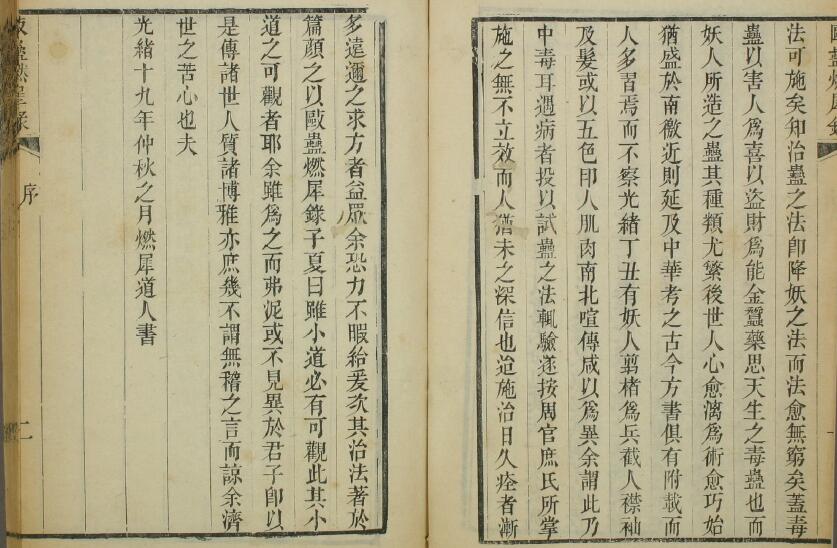 法可施矣知治蠱之法卽降妖之法而法愈無窮矣蓋毒
蠱以害人爲喜以盜財爲能金蠶藥思天生之毒蠱也而
妖人所造之蠱其種類尤繁後世人心愈漓爲術愈巧始
猶盛於南徼近則延及中華考之古今方書俱有附載而
人多習焉而不察光緒丁丑有妖人剪楮爲兵截人襟袖
及髮或以五色印人肌肉南北喧傳咸以爲異余謂此乃
中毒耳遇病者投以試蠱之法輒驗遂按周官庶氏所掌
施之無不立效而人猶未之深信也迨施治日久痊者漸
多遠邇之求方者益眾余恐力不暇給爰次其治法著於
篇顏之以歐蠱燃犀錄子夏曰雖小道必有可觀此其小
道之可觀者耶余雖爲之而弗泥或不見異於君子卽以
是傳諸世人質諸博雅亦庶幾不謂無稽之言而諒余濟
世之苦心也夫
光緒十九年仲秋之月燃犀道人書
序
二